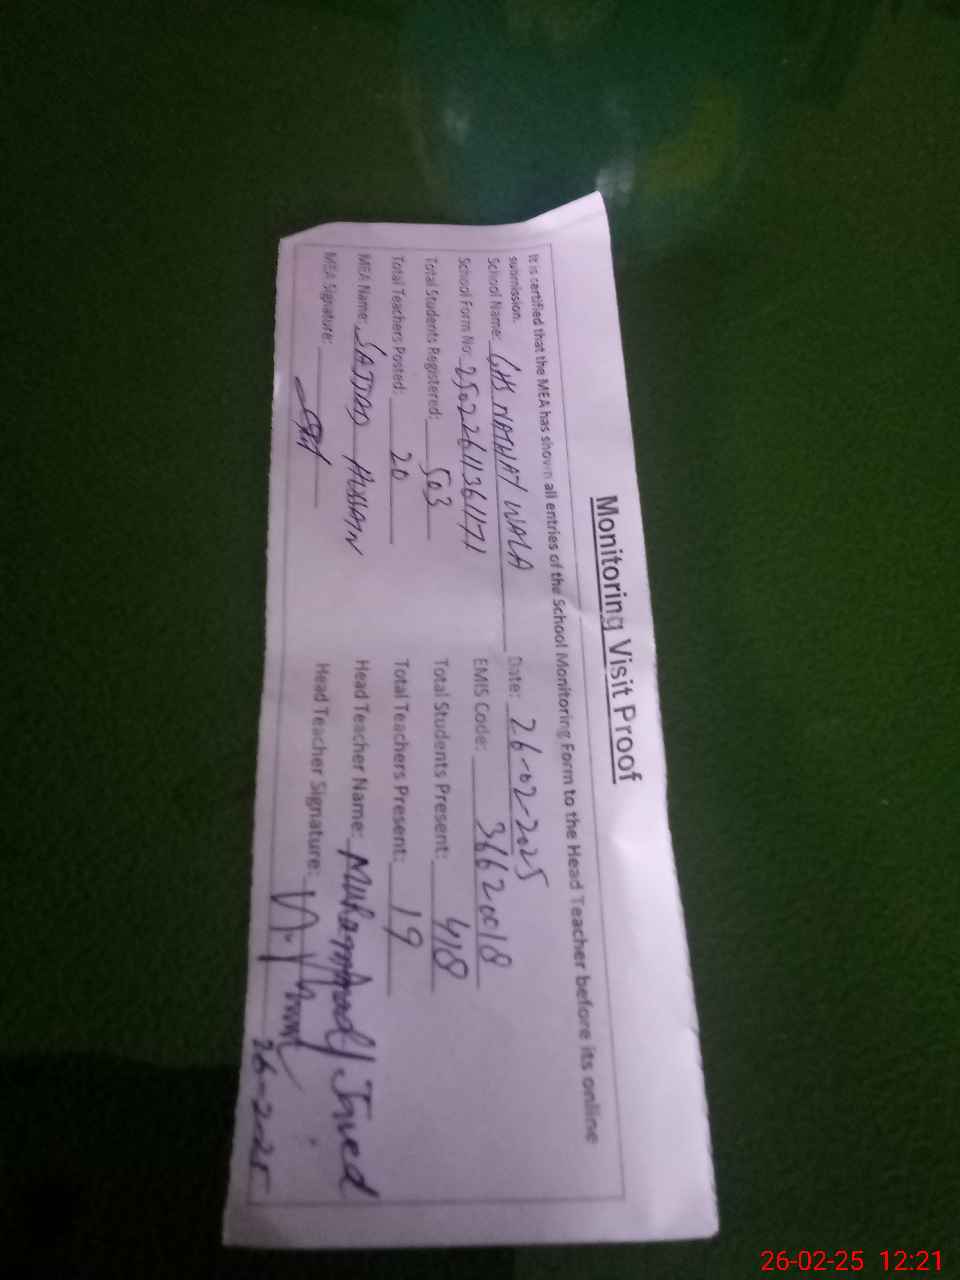 Monitoring Visit Proof
It is certified that the MEA has shown all entries of the School Monitoring Form to the Head Teacher before its online
submission.
School Name: GHS NATHAY WALA Date: 26-02-2025
School Form No: 25022611361171 EMIS Code: 36620018
Total Students Registered: 503 Total Students Present: 418
Total Teachers Posted: 20 Total Teachers Present: 19
MEA Name: SAJJAD HUSSAIN Head Teacher Name: Muhammad Javed
MEA Signature: Head Teacher Signature:
26-2-25
26-02-25 12:21